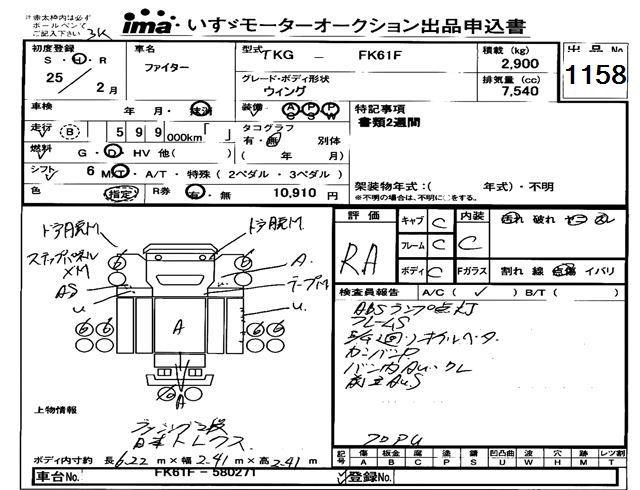 注 赤太枠内は必ず
ボールペンで
ご記入下さい
ima いすゞモーターオークション出品申込書
初度登録
S・H・R
25 / 2月
車名
ファイター
型式
TKG - FK61F
グレード・ボディ形状
ウィング
積載 (kg)
2,900
排気量 (cc)
7,540
出品No
1158
車検 年 月・抹消
装備 A C P S P W
特記事項
書類2週間
走行 (B) 599,000km「 」
タコグラフ
有・無 別体
( 年 月)
燃料 G・D・HV 他( )
シフト 6 MT・A/T・特殊 (2ペダル・3ペダル)
色 (指定) R券 有・無 10,910 円
架装物年式:( 年式)・不明
※不明の場合は、不明に○をする。
評価
RA
キャブ C
フレーム C
ボディ C
内装 C
汚れ 破れ
Fガラス 割れ 線 点傷 イバリ
検査員報告 A/C ( ✓ ) B/T ( )
ABSランプ点灯
フレームS
トヨ房M
トヨ房M
ステップパネル
XM
AS
u
A.
テープM
u.
A
A
6 6 6 6 6 6
上物情報
日本トレクス
ボディ内寸約 長6.22 m×幅2.41 m×高2.41 m
記号 傷 A 板金 B 腐 C 塗 P 錆 S 凹凸曲 U 波 W 穴 H 跡 M レツ割 T
車台No. FK61F-580271
登録No.